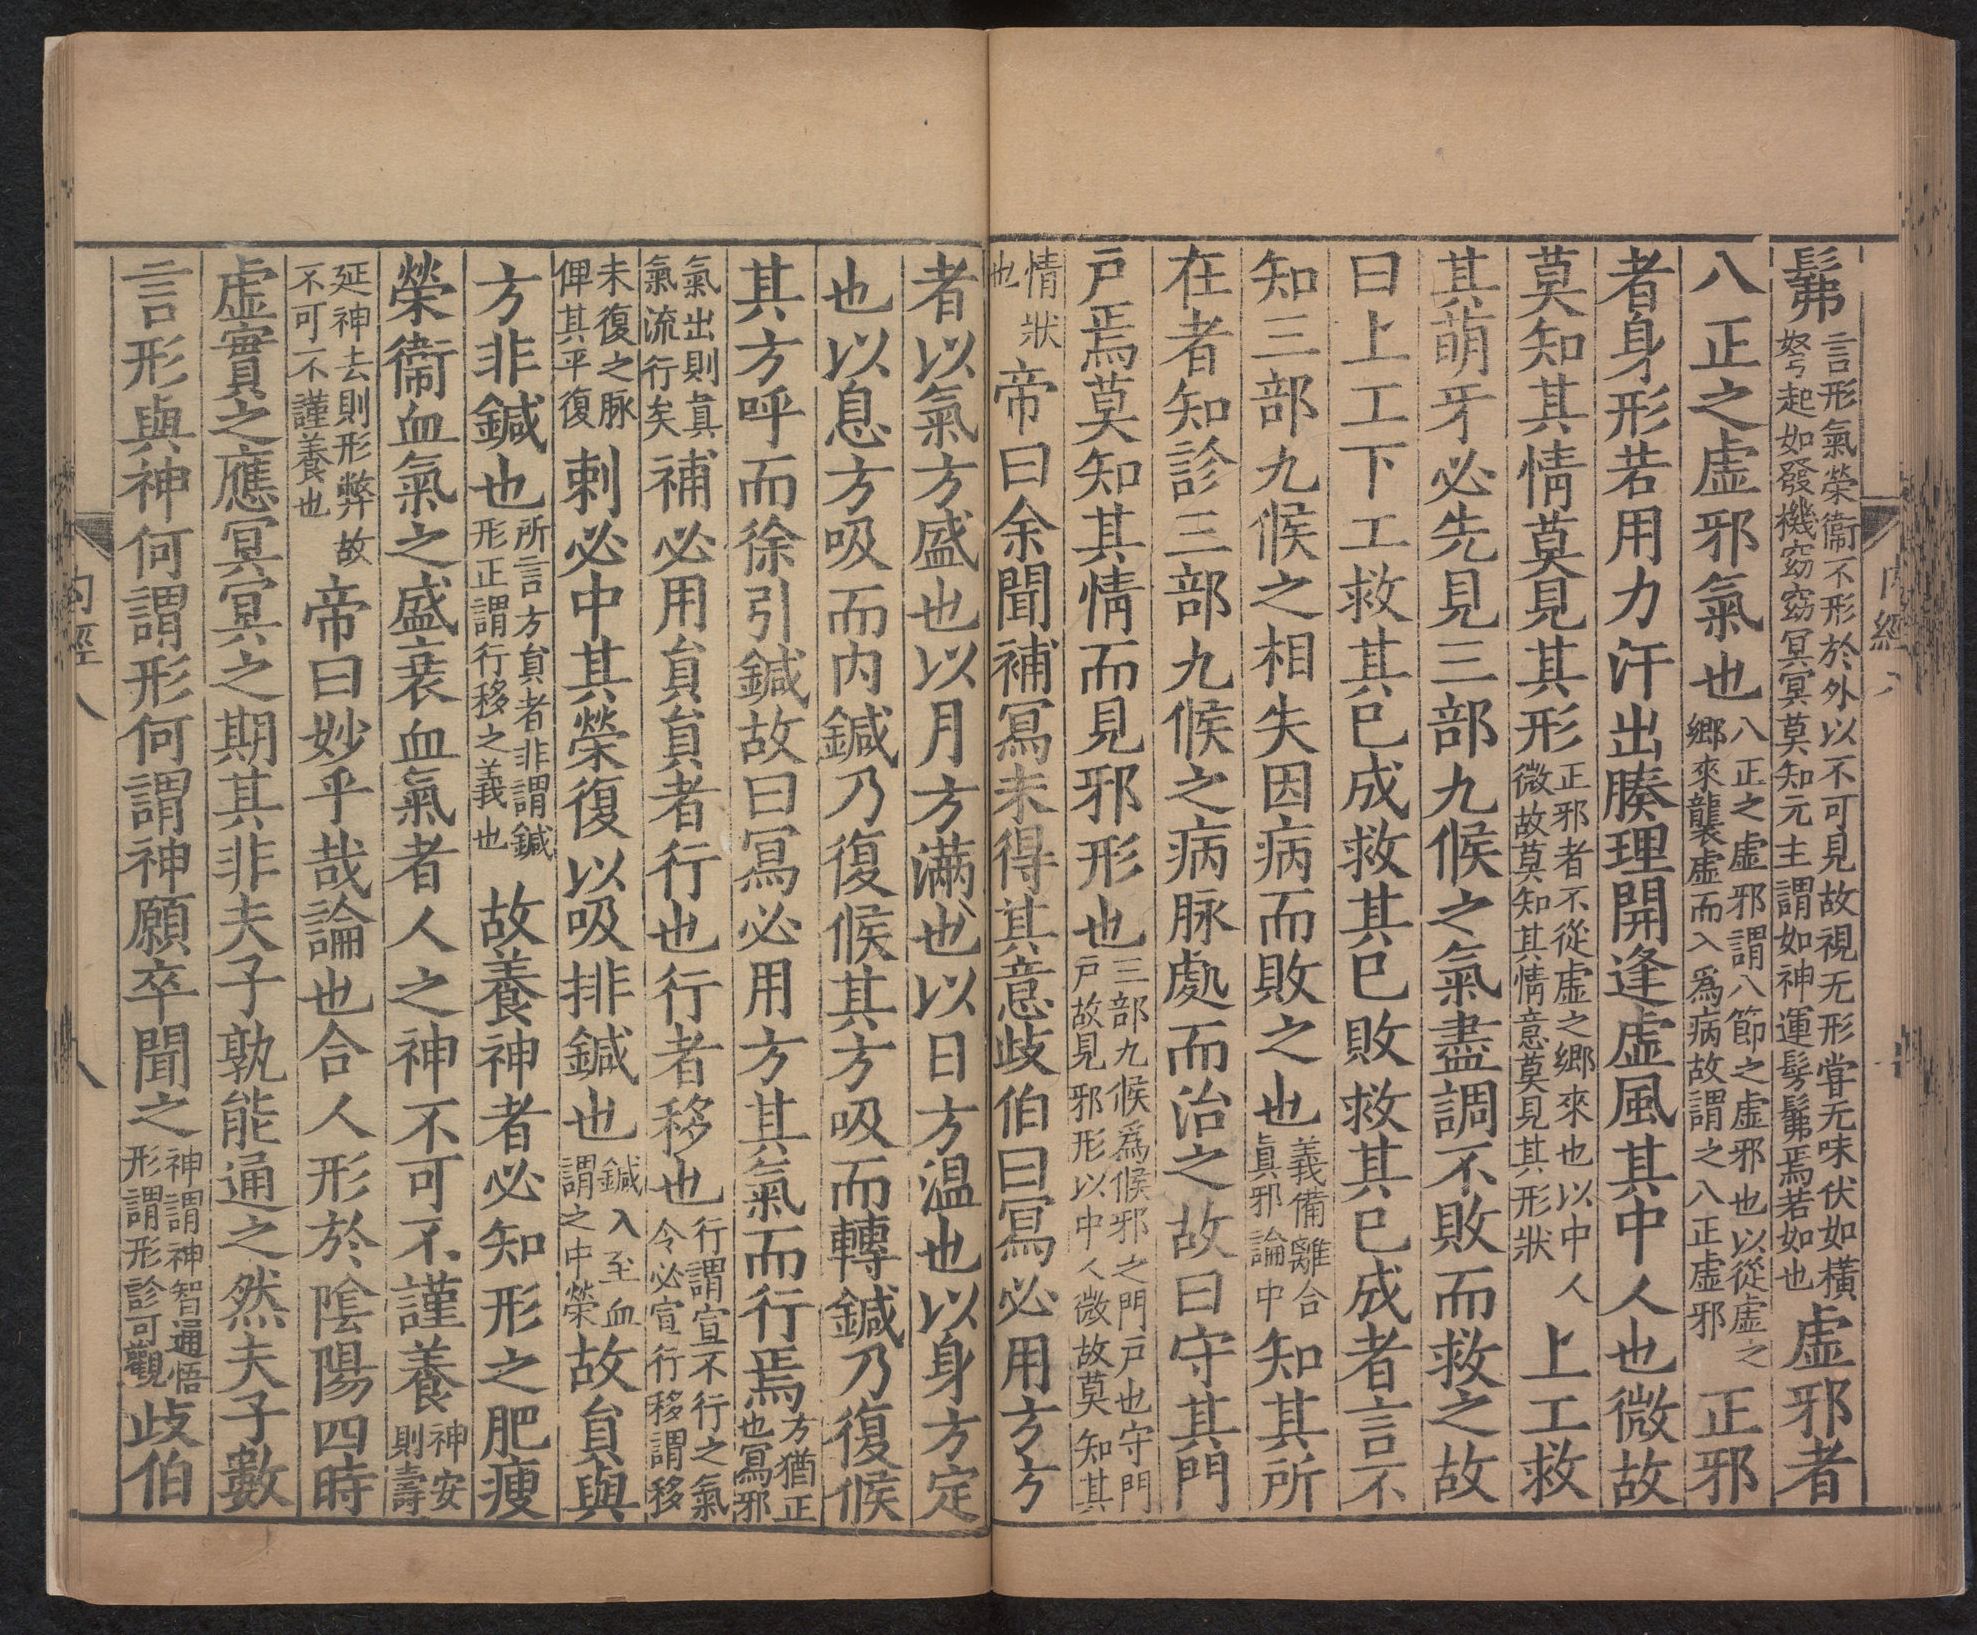 髴言形氣榮衞不形於外以不可見故視无形嘗无味伏如橫弩起如發機窈窈冥冥莫知元主謂如神運髣髴焉若如也虛邪者
八正之虛邪氣也八正之虛邪謂八節之虛邪也以從虛之鄉來襲虛而入爲病故謂之八正虛邪正邪
者身形若用力汗出腠理開逢虛風其中人也微故
莫知其情莫見其形正邪者不從虛之鄉來也以中人微故莫知其情意莫見其形狀上工救
其萌牙必先見三部九候之氣盡調不敗而救之故
曰上工下工救其已成救其已敗救其已成者言不
知三部九候之相失因病而敗之也義備離合眞邪論中知其所
在者知診三部九候之病脉處而治之故曰守其門
戶焉莫知其情而見邪形也三部九候爲候邪之門戶也守門戶故見邪形以中人微故莫知其
情狀也帝曰余聞補冩未得其意歧伯曰冩必用方方
者以氣方盛也以月方滿也以日方温也以身方定
也以息方吸而内鍼乃復候其方吸而轉鍼乃復候
其方呼而徐引鍼故曰冩必用方其氣而行焉方猶正也冩邪
氣出則眞氣流行矣補必用貟貟者行也行者移也行謂宣不行之氣令必宣行移謂移
未復之脉俾其平復刺必中其榮復以吸排鍼也鍼入至血謂之中榮故貟與
方非鍼也所言方貟者非謂鍼形正謂行移之義也故養神者必知形之肥瘦
榮衞血氣之盛衰血氣者人之神不可不謹養神安則壽
延神去則形弊故不可不謹養也帝曰妙乎哉論也合人形於陰陽四時
虛實之應冥冥之期其非夫子孰能通之然夫子數
言形與神何謂形何謂神願卒聞之神謂神智通悟形謂形診可觀歧伯
内經八
八